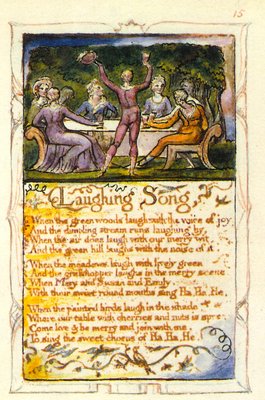 15
Laughing Song,
When the green woods laugh with the voice of joy
And the dimpling stream runs laughing by
When the air does laugh with our merry wit
And the green hill laughs with the noise of
When the meadows laugh with lively green
And the grasshopper laughs in the merry scene
When Mary and Susan and Emily
With their sweet round mouths sing Ha, Ha, He.
When the painted birds laugh in the shade
Where our table with cherries and nuts is
Come live & be merry and join with me
To sing the sweet chorus of Ha, Ha, He.